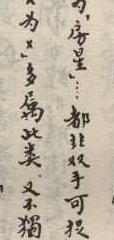 为「房星」…都非双手可捉
「为」多属此类,又不独